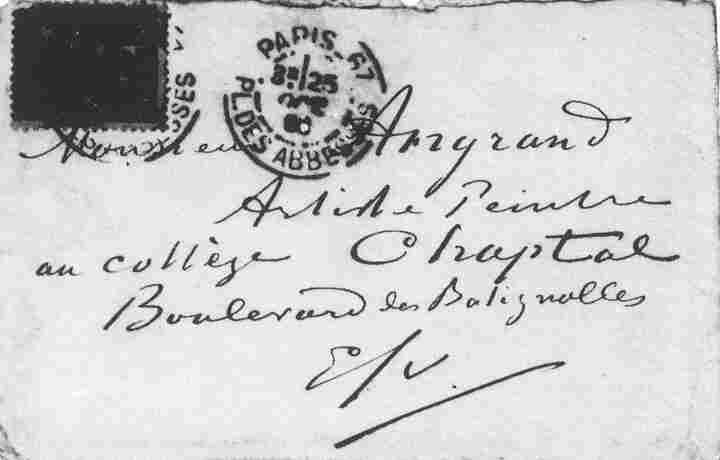 PARIS_67
8E/25
86
PL. DES ABBESSES
Monsieur Angrand
Artiste Peintre
au collège Chaptal
Boulevard des Batignolles
E/V.